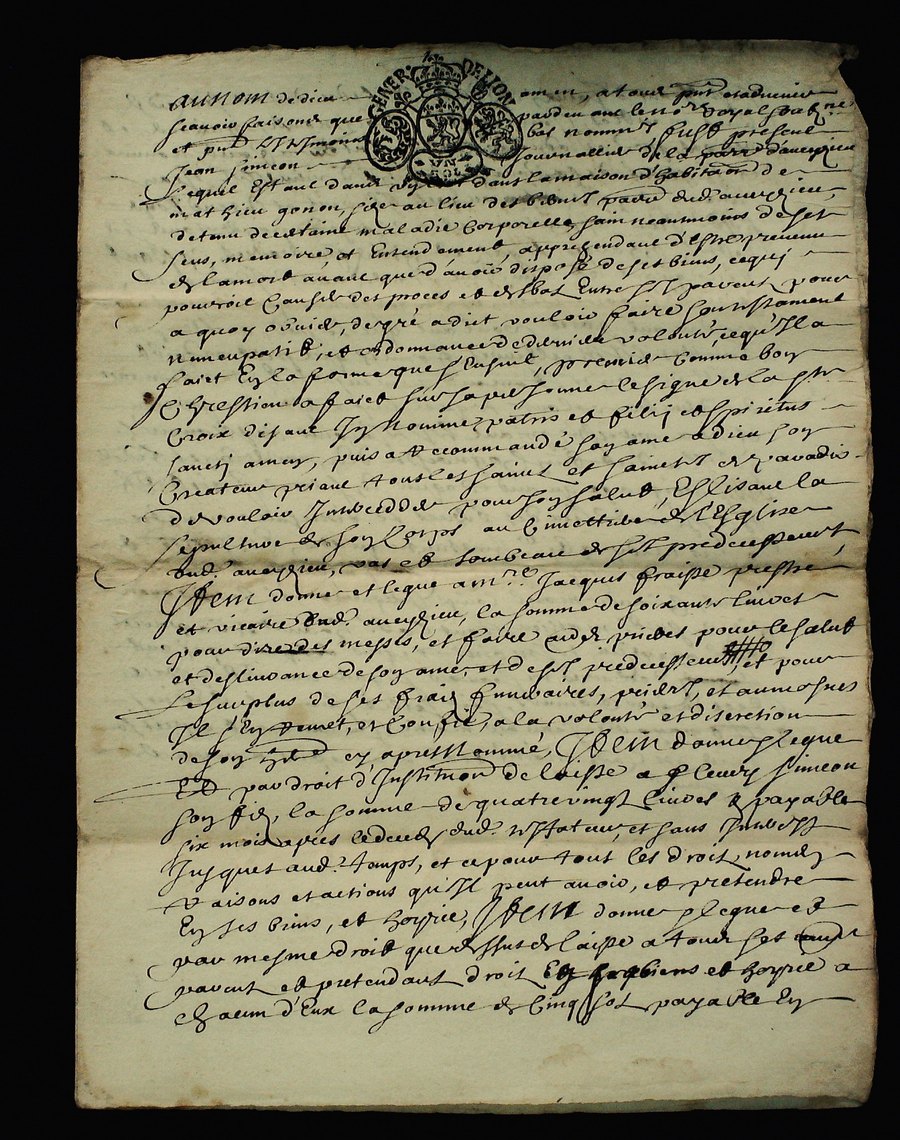 GENER. DE LION
au nom de dieu amen, a tous pnts et advenir
scavoir faisons que pardevant le nore royal soubzne
et pnts les tesmoins bas nommes fust present
Jean Simeon journallier de la parre d'aveyzieu
lequel estant dans un lict dans la maison d'habitaon de
mathieu gonon, size au lieu des parre dud. aveyzieu,
detenu de certaine maladie corporelle, sain neantmoins de ses
sens, memoire, et entendement, apprehendant d'estre prevenu
de la mort avant que d'avoir disposé de ses biens, ce qui
pourroit causer des proces et desbat entre ses parents pour
a quoy obvier, de gré a dict vouloir faire son testament
nuncupatif, et ordonnance de derniere volonté, ce qu'il a
faict en la forme que s'ensuit, premier comme bon
Chrestien a faict sur sa personne le signe de la ste
Croix disant In nomine patris et filij et spiritus
sancti amen, puis a recommandé son ame a dieu son
Createur priant tous les saincts et sainctes de paradis
de vouloir interceder pour son salut, Eslisant la
sepulture de son corps au Cimettiere de l'Eglise
dud. aveyzieu, vas et tombeau de ses predecesseurs,
Item donne et legue a mre Jacques fraisse prestre
et vicaire dud. aveyzieu, la somme de soixante livres
pour dire des messes, et faire prieres pour le salut
et deslivrance de son ame, et de ses predecesseurs, et pour
le surplus de ses frais funeraires, prieres, et aumosnes
Il s'en remet, et confie, a la volonté et discretion
de son here cy apres nommé, Item donne legue
et par droit d'Institution delaisse a fleury Simeon
son fils, la somme de quatre vingt livres payable
six mois apres le deces dud. testateur, et sans Interest
Jusques aud. temps, et ce pour tous les droits, noms,
raisons et actions qu'il peut avoir, et pretendre
en ses biens, et hoyrie, Item donne legue et
par mesme droit que dessus delaisse a tous ses autres
parents et pretendants droit en ses biens et hoyrie a
chacun d'eux la somme de Cinq sols payable en